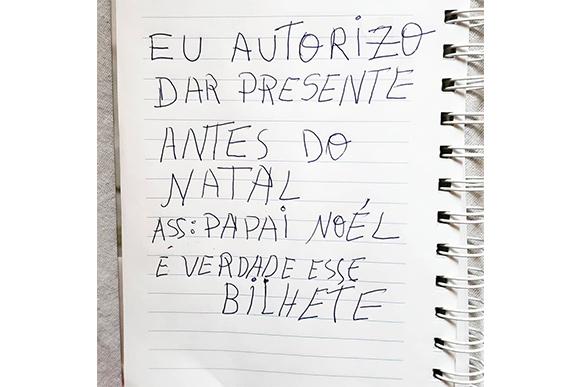 EU AUTORIZO
DAR PRESENTE
ANTES DO
NATAL
ASS: PAPAI NOÉL
É VERDADE ESSE
BILHETE